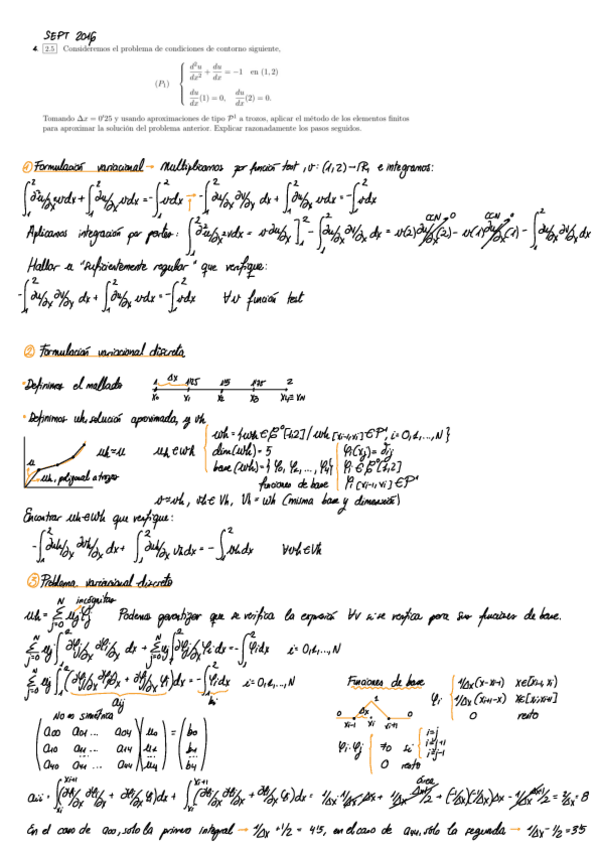 SEPT 2016
4. 2.5 Consideremos el problema de condiciones de contorno siguiente,
(P₁) { d²u/dx² + du/dx = −1 en (1, 2)
du/dx (1) = 0, du/dx (2) = 0.
Tomando Δx = 0'25 y usando aproximaciones de tipo P¹ a trozos, aplicar el método de los elementos finitos
para aproximar la solución del problema anterior. Explicar razonadamente los pasos seguidos.
① Formulación variacional → Multiplicamos por función test, v: (1,2) → ℝ, e integramos:
∫₁² ∂²u/∂x² v dx + ∫₁² ∂u/∂x v dx = -∫₁² v dx → -∫₁² ∂u/∂x ∂v/∂x dx + ∫₁² ∂u/∂x v dx = -∫₁² v dx
Aplicamos integración por partes: ∫₁² ∂²u/∂x² v dx = v ∂u/∂x ]₁² - ∫₁² ∂u/∂x ∂v/∂x dx = v(2) ∂u/∂x (2) - v(1) ∂u/∂x (1) - ∫₁² ∂u/∂x ∂v/∂x dx
Hallar u "suficientemente regular" que verifique:
-∫₁² ∂u/∂x ∂v/∂x dx + ∫₁² ∂u/∂x v dx = -∫₁² v dx ∀v función test
② Formulación variacional discreta
• Definimos el mallado 1 Δx 1'25 1'5 1'75 2
x₀ x₁ x₂ x₃ x₄ = xN
• Definimos uh, solución aproximada, y vh
u uh ≈ u uh ∈ Wh
uh, poligonal a trozos
Wh = {wh ∈ C⁰[1,2] / wh [xi-1, xi] ∈ P¹, i = 0,1,...,N}
dim(Wh) = 5 φi(xj) = δij
base (Wh) = {φ0, φ1, ..., φ4} φi ∈ C⁰[1,2]
funciones de base φi [xi-1, xi] ∈ P¹
v ≈ vh, vh ∈ Vh, Vh = Wh (misma base y dimensión)
Encontrar uh ∈ Wh que verifique:
-∫₁² ∂uh/∂x ∂vh/∂x dx + ∫₁² ∂uh/∂x vh dx = -∫₁² vh dx ∀vh ∈ Vh
③ Problema variacional discreto
incógnitas
uh = Σ uj φj Podemos garantizar que se verifica la expresión ∀v si se verifica para sus funciones de base.
Σ uj ∫₁² ∂φj/∂x ∂φi/∂x dx + Σ uj ∫₁² ∂φj/∂x φi dx = -∫₁² φi dx i = 0,1,...,N
Σ uj ∫₁² (∂φj/∂x ∂φi/∂x + ∂φj/∂x φi) dx = -∫₁² φi dx i = 0,1,...,N
aij bi
No es simétrica
(a00 a01 ... a04) (u0) = (b0)
(a10 a11 ... a14) (u1) (b1)
(a40 a41 ... a44) (u4) (b4)
Funciones de base
0 Δx 1 0
xi-1 xi xi+1
φi { 1/Δx (x-xi-1) x∈[xi-1, xi]
1/Δx (xi+1-x) x∈[xi, xi+1]
0 resto
φi·φj { ≠0 si { i=j
i=j+1
i=j-1
0 resto
área
En el caso de a00, solo la primera integral → 1/Δx + 1/2 = 4'5, en el caso de a44, sólo la segunda → 1/Δx - 1/2 = 3'5